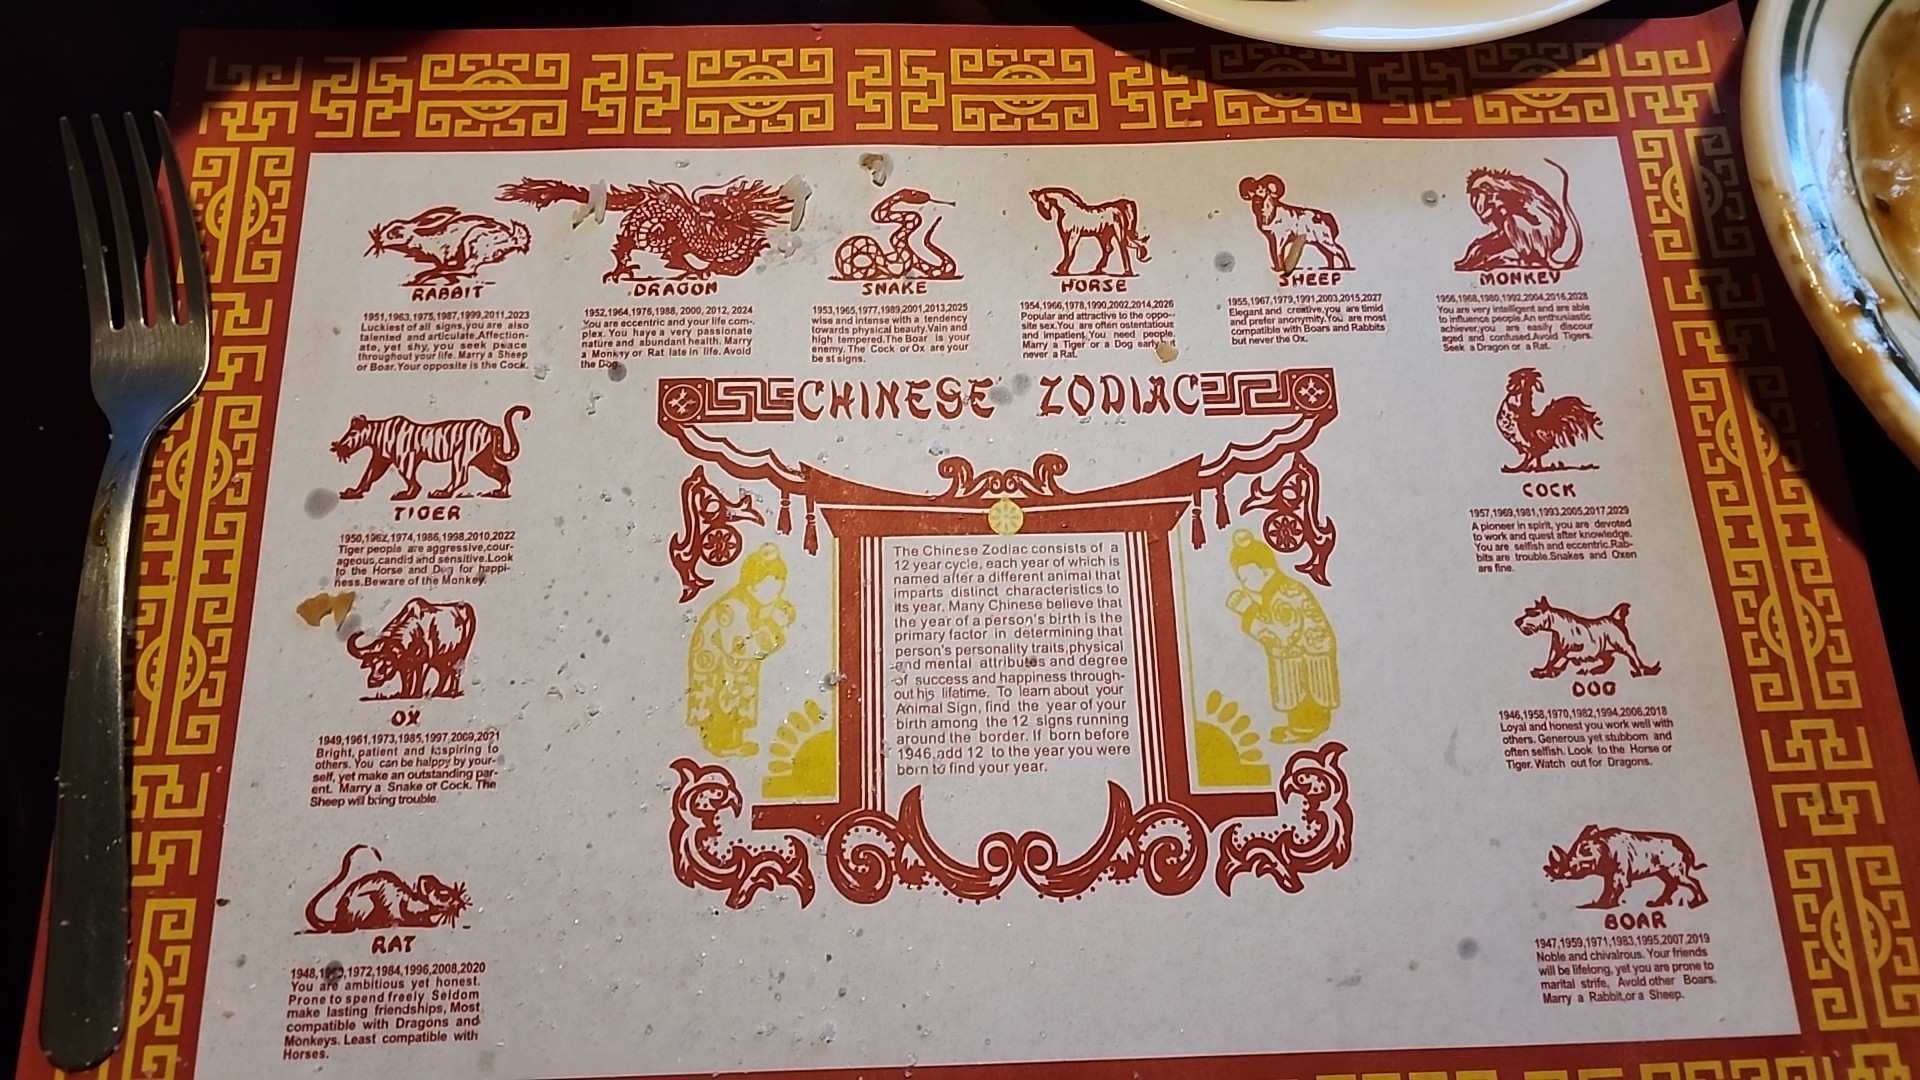 RABBIT
1951,1963,1975,1987,1999,2011,2023
Luckiest of all signs,you are also
talented and articulate,Affection-
ate, yet shy, you seek peace
throughout your life. Marry a Sheep
or Boar.Your opposite is the Cock.
DRAGON
1952,1964,1976,1988, 2000, 2012, 2024
You are eccentric and your life com-
plex. You have a very passionate
nature and abundant health. Marry
a Monkey or Rat late in life. Avoid
the Dog.
SNAKE
1953,1965,1977,1989,2001,2013,2025
wise and intense with a tendency
towards physical beauty.Vain and
high tempered.The Boar is your
enemy. The Cock or Ox are your
best signs.
HORSE
1954,1966,1978,1990,2002,2014,2026
Popular and attractive to the oppo-
site sex.You are often ostentatious
and impatient.You need people.
Marry a Tiger or a Dog early but
never a Rat.
SHEEP
1955,1967,1979,1991,2003,2015,2027
Elegant and creative,you are timid
and prefer anonymity.You are most
compatible with Boars and Rabbits
but never the Ox.
MONKEY
1956,1968,1980,1992,2004,2016,2028
You are very intelligent and are able
to influence people.An enthusiastic
achiever,you are easily discour
aged and confused.Avoid Tigers.
Seek a Dragon or a Rat.
CHINESE ZODIAC
TIGER
1950,1962,1974,1986,1998,2010,2022
Tiger people are aggressive,cour-
ageous,candid and sensitive.Look
to the Horse and Dog for happi-
ness.Beware of the Monkey.
COCK
1957,1969,1981,1993,2005,2017,2029
A pioneer in spirit, you are devoted
to work and quest after knowledge.
You are selfish and eccentric.Rab-
bits are trouble.Snakes and Oxen
are fine.
The Chinese Zodiac consists of a
12 year cycle, each year of which is
named after a different animal that
imparts distinct characteristics to
its year. Many Chinese believe that
the year of a person's birth is the
primary factor in determining that
person's personality traits,physical
and mental attributes and degree
of success and happiness through-
out his lifetime. To learn about your
Animal Sign, find the year of your
birth among the 12 signs running
around the border. If born before
1946,add 12 to the year you were
born to find your year.
OX
1949,1961,1973,1985,1997,2009,2021
Bright, patient and inspiring to
others. You can be halppy by your-
self, yet make an outstanding par-
ent. Marry a Snake or Cock. The
Sheep will bring trouble.
DOG
1946,1958,1970,1982,1994,2006,2018
Loyal and honest you work well with
others. Generous yet stubbom and
often selfish. Look to the Horse or
Tiger. Watch out for Dragons.
RAT
1948,1960,1972,1984,1996,2008,2020
You are ambitious yet honest.
Prone to spend freely. Seldom
make lasting friendships, Most
compatible with Dragons and
Monkeys. Least compatible with
Horses.
BOAR
1947,1959,1971,1983,1995,2007,2019
Noble and chivalrous. Your friends
will be lifelong, yet you are prone to
marital strife, Avoid other Boars.
Marry a Rabbit,or a Sheep.